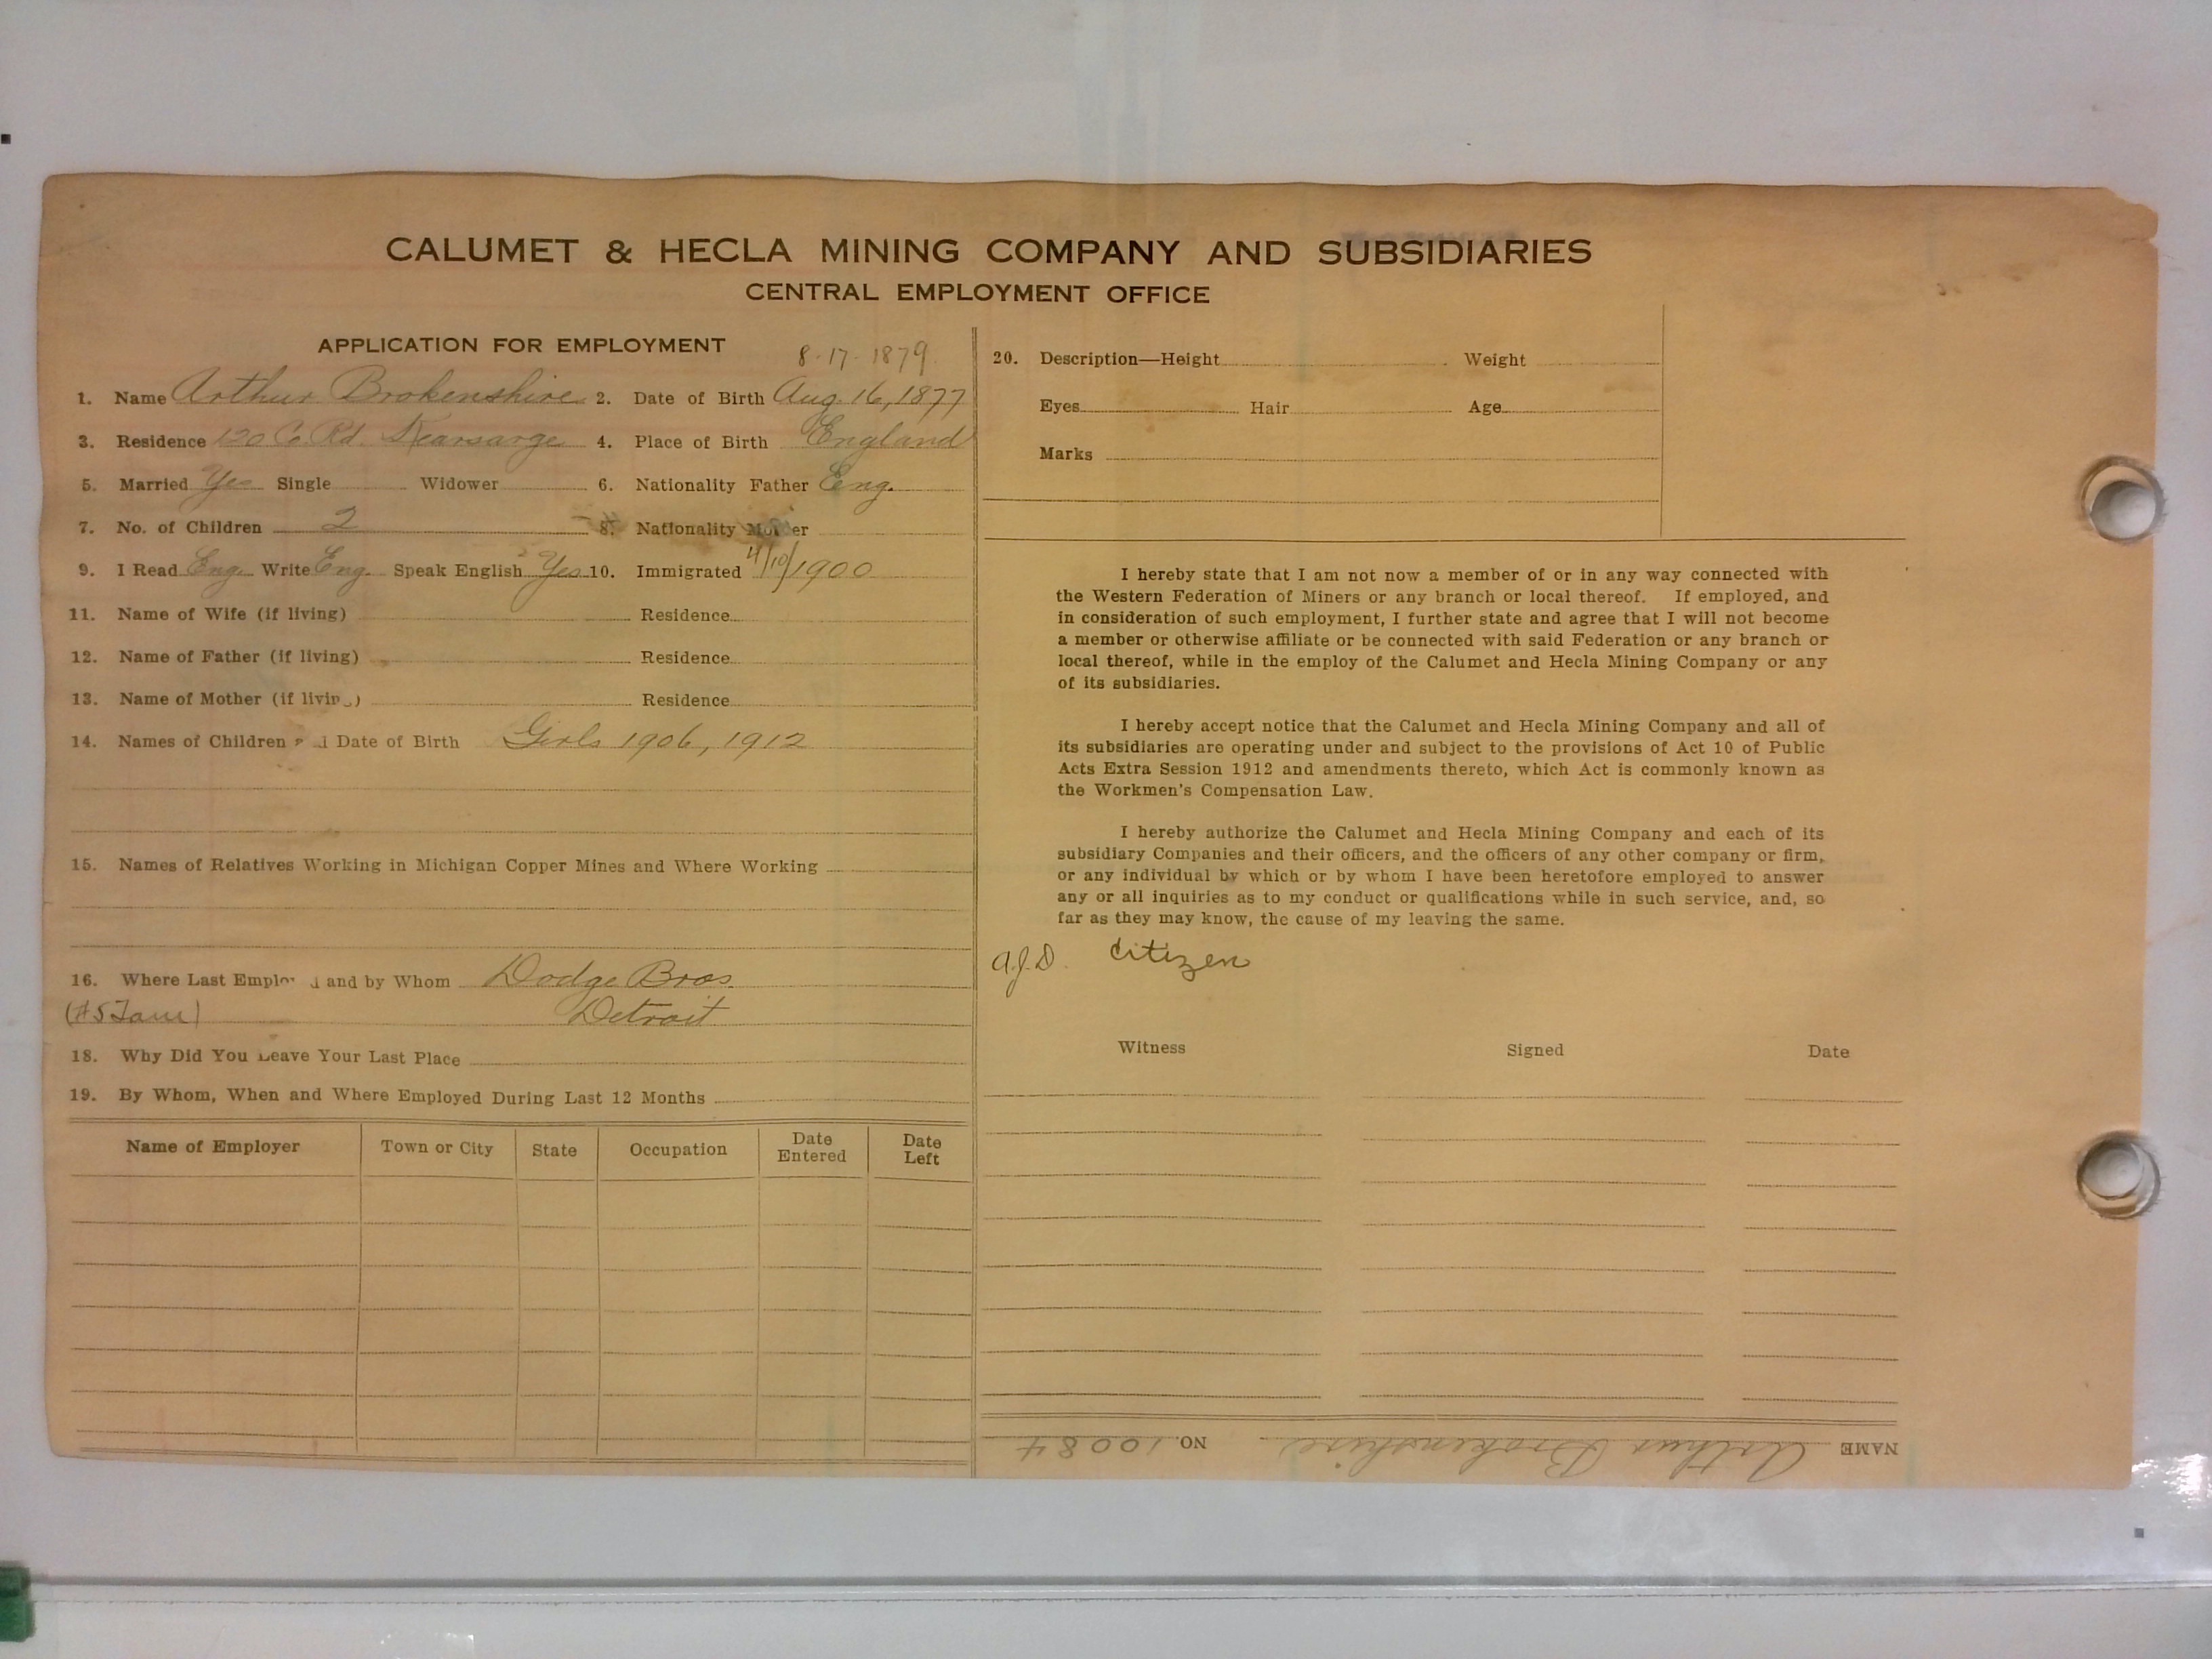 CALUMET & HECLA MINING COMPANY AND SUBSIDIARIES
CENTRAL EMPLOYMENT OFFICE
APPLICATION FOR EMPLOYMENT
8-17-1879
1. Name Arthur Brokenshire 2. Date of Birth Aug. 16, 1877
3. Residence 120 Co. Rd. Kearsarge 4. Place of Birth England
5. Married Yes Single Widower 6. Nationality Father Eng.
7. No. of Children 2 8. Nationality Mother
9. I Read Eng. Write Eng. Speak English Yes 10. Immigrated 4/10/1900
11. Name of Wife (if living) Residence
12. Name of Father (if living) Residence
13. Name of Mother (if living) Residence
14. Names of Children and Date of Birth Girls 1906, 1912
15. Names of Relatives Working in Michigan Copper Mines and Where Working
16. Where Last Employed and by Whom Dodge Bros.
Detroit
18. Why Did You Leave Your Last Place
19. By Whom, When and Where Employed During Last 12 Months
Name of Employer Town or City State Occupation Date Entered Date Left
20. Description—Height Weight
Eyes Hair Age
Marks
I hereby state that I am not now a member of or in any way connected with
the Western Federation of Miners or any branch or local thereof. If employed, and
in consideration of such employment, I further state and agree that I will not become
a member or otherwise affiliate or be connected with said Federation or any branch or
local thereof, while in the employ of the Calumet and Hecla Mining Company or any
of its subsidiaries.
I hereby accept notice that the Calumet and Hecla Mining Company and all of
its subsidiaries are operating under and subject to the provisions of Act 10 of Public
Acts Extra Session 1912 and amendments thereto, which Act is commonly known as
the Workmen's Compensation Law.
I hereby authorize the Calumet and Hecla Mining Company and each of its
subsidiary Companies and their officers, and the officers of any other company or firm,
or any individual by which or by whom I have been heretofore employed to answer
any or all inquiries as to my conduct or qualifications while in such service, and, so
far as they may know, the cause of my leaving the same.
a.J.D. Citizen
Witness Signed Date
NAME Arthur Brokenshire NO. 10084